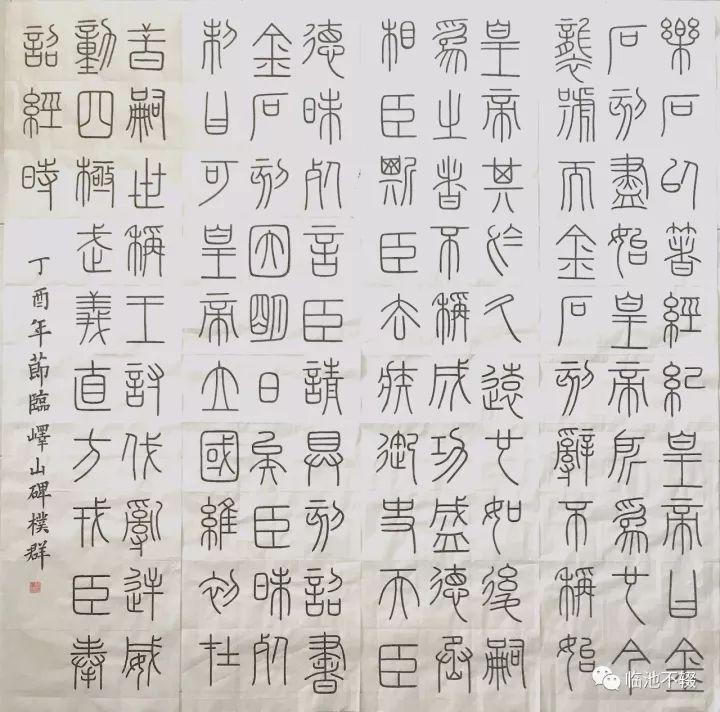 樂石以著經紀皇帝曰金
石刻盡始皇帝所為也今
襲號而金石刻辭不稱始
皇帝其於久遠也如後嗣
為之者不稱成功盛德丞
相臣斯臣去疾御史夫臣
德昧死言臣請具刻詔書
金石刻因明白矣臣昧死
制曰可皇帝立國維初在
昔嗣世稱王討伐亂逆威
動四極武義直方戎臣奉
詔經時
丁酉年節臨嶧山碑樸群
临池不辍